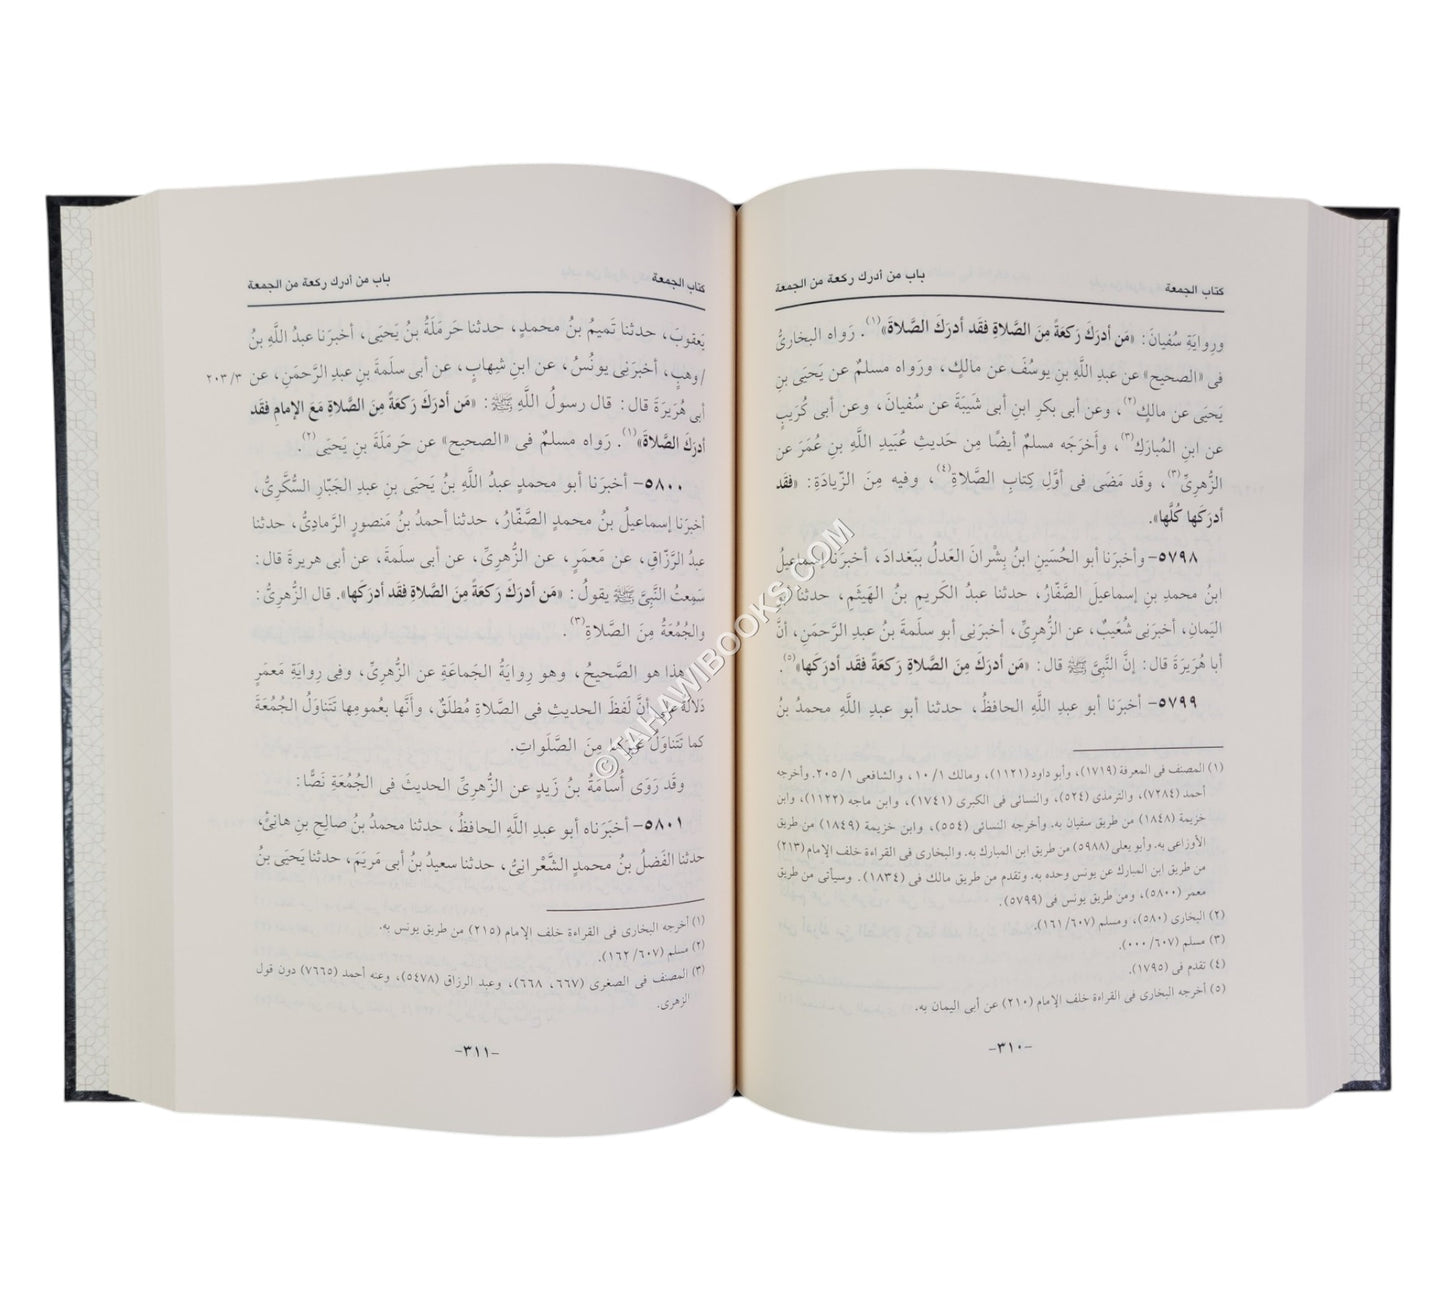 كتاب الجمعة
باب من أدرك ركعة من الجمعة
ورِوايَةِ سُفيانَ: «مَن أدرَكَ رَكعَةً مِنَ الصَّلاةِ فقَد أدرَكَ الصَّلاةَ»(١). رَواه البخارىُّ
فى «الصحيح» عن عبدِ اللَّهِ بنِ يوسُفَ عن مالكٍ، ورَواه مسلمٌ عن يَحيَى بنِ
يَحيَى عن مالكٍ(٢)، وعن أبى بكرِ ابنِ أبى شَيبَةَ عن سُفيانَ، وعن أبى كُرَيبٍ
عن ابنِ المُبارَكِ(٣)، وأَخرَجَه مسلمٌ أيضًا مِن حَديثِ عُبَيدِ اللَّهِ بنِ عُمَرَ عن
الزُّهرِىِّ(٣)، وقَد مَضَى فى أوَّلِ كِتابِ الصَّلاةِ(٤)، وفيه مِنَ الزّيادَةِ: «فقَد
أدرَكَها كُلَّها».
٥٧٩٨- وأخبرَنا أبو الحُسَينِ ابنُ بِشْرانَ العَدلُ ببَغدادَ، أخبرَنا إسماعيلُ
ابنُ محمدِ بنِ إسماعيلَ الصَّفّارُ، حدثنا عبدُ الكَريمِ بنُ الهَيثَمِ، حدثنا أبو
اليَمانِ، أخبرَنى شُعَيبٌ، عن الزُّهرِىِّ، أخبرَنى أبو سلَمةَ بنُ عبدِ الرَّحمَنِ، أنَّ
أبا هُرَيرَةَ قال: إنَّ النَّبِىَّ ﷺ قال: «مَن أدرَكَ مِنَ الصَّلاةِ رَكعَةً فقَد أدرَكَها»(٥).
٥٧٩٩- أخبرَنا أبو عبدِ اللَّهِ الحافظُ، حدثنا أبو عبدِ اللَّهِ محمدُ بنُ
(١) المصنف فى المعرفة (١٧١٩)، وأبو داود (١١٢١)، ومالك ١٠/١، والشافعى ٢٠٥/١. وأخرجه
أحمد (٧٢٨٤)، والترمذى (٥٢٤)، والنسائى فى الكبرى (١٧٤١)، وابن ماجه (١١٢٢)، وابن
خزيمة (١٨٤٨) من طريق سفيان به. وأخرجه النسائى (٥٥٤)، وابن خزيمة (١٨٤٩) من طريق
الأوزاعى به. وأبو يعلى (٥٩٨٨) من طريق ابن المبارك به. والبخارى فى القراءة خلف الإمام (٢١٣)
من طريق ابن المبارك عن يونس وحده به. وتقدم من طريق مالك فى (١٨٣٤). وسيأتى من طريق
معمر (٥٨٠٠)، ومن طريق يونس فى (٥٧٩٩).
(٢) البخارى (٥٨٠)، ومسلم (١٦١/٦٠٧).
(٣) مسلم (٠٠٠/٦٠٧).
(٤) تقدم فى (١٧٩٥).
(٥) أخرجه البخارى فى القراءة خلف الإمام (٢١٠) عن أبى اليمان به.
-٣١٠-
كتاب الجمعة
باب من أدرك ركعة من الجمعة
يَعقوبَ، حدثنا تَميمُ بنُ محمدٍ، حدثنا حَرمَلَةُ بنُ يَحيَى، أخبرَنا عبدُ اللَّهِ بنُ
/وهبٍ، أخبرَنى يونُسُ، عن ابنِ شِهابٍ، عن أبى سلَمةَ بنِ عبدِ الرَّحمَنِ، عن ٢٠٣/٣
أبى هُرَيرَةَ قال: قال رسولُ اللَّهِ ﷺ: «مَن أدرَكَ رَكعَةً مِنَ الصَّلاةِ مَعَ الإمامِ فقَد
أدرَكَ الصَّلاةَ»(١). رَواه مسلمٌ فى «الصحيح» عن حَرمَلَةَ بنِ يَحيَى(٢).
٥٨٠٠- أخبرَنا أبو محمدٍ عبدُ اللَّهِ بنُ يَحيَى بنِ عبدِ الجَبّارِ السُّكَّرِىُّ،
أخبرَنا إسماعيلُ بنُ محمدٍ الصَّفّارُ، حدثنا أحمدُ بنُ مَنصورٍ الرَّمادِىُّ، حدثنا
عبدُ الرَّزّاقِ، عن مَعمَرٍ، عن الزُّهرِىِّ، عن أبى سلَمةَ، عن أبى هريرةَ قال:
سَمِعتُ النَّبِىَّ ﷺ يقولُ: «مَن أدرَكَ رَكعَةً مِنَ الصَّلاةِ فقَد أدرَكَها». قال الزُّهرِىُّ:
والجُمُعَةُ مِنَ الصَّلاةِ(٣).
هذا هو الصَّحيحُ، وهو رِوايَةُ الجَماعَةِ عن الزُّهرِىِّ، وفِى رِوايَةِ مَعمَرٍ
دَلالَةٌ على أنَّ لَفظَ الحديثِ فى الصَّلاةِ مُطلَقٌ، وأنَّها بعُمومِها تَتَناوَلُ الجُمُعَةَ
كما تَتَناوَلُ غَيرَها مِنَ الصَّلَواتِ.
وقَد رَوَى أُسامَةُ بنُ زَيدٍ عن الزُّهرِىِّ الحديثَ فى الجُمُعَةِ نَصًّا:
٥٨٠١- أخبَرَناه أبو عبدِ اللَّهِ الحافظُ، حدثنا محمدُ بنُ صالِحِ بنِ هانِئٍ،
حدثنا الفَضلُ بنُ محمدٍ الشَّعْرانِىُّ، حدثنا سعيدُ بنُ أبى مَريَمَ، حدثنا يَحيَى بنُ
(١) أخرجه البخارى فى القراءة خلف الإمام (٢١٥) من طريق يونس به.
(٢) مسلم (١٦٢/٦٠٧).
(٣) المصنف فى الصغرى (٦٦٧، ٦٦٨)، وعبد الرزاق (٥٤٧٨)، وعنه أحمد (٧٦٦٥) دون قول
الزهرى.
-٣١١-
© TAHAWIBOOKS.COM